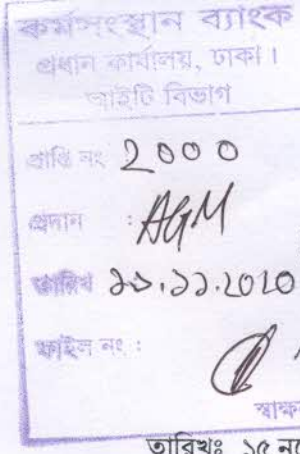 কর্মসংস্থান ব্যাংক
প্রধান কার্যালয়, ঢাকা।
আইটি বিভাগ
প্রাপ্তি নং 2000
প্রদান : AGM
তারিখ
ফাইল নং :
তারিখঃ ১৫